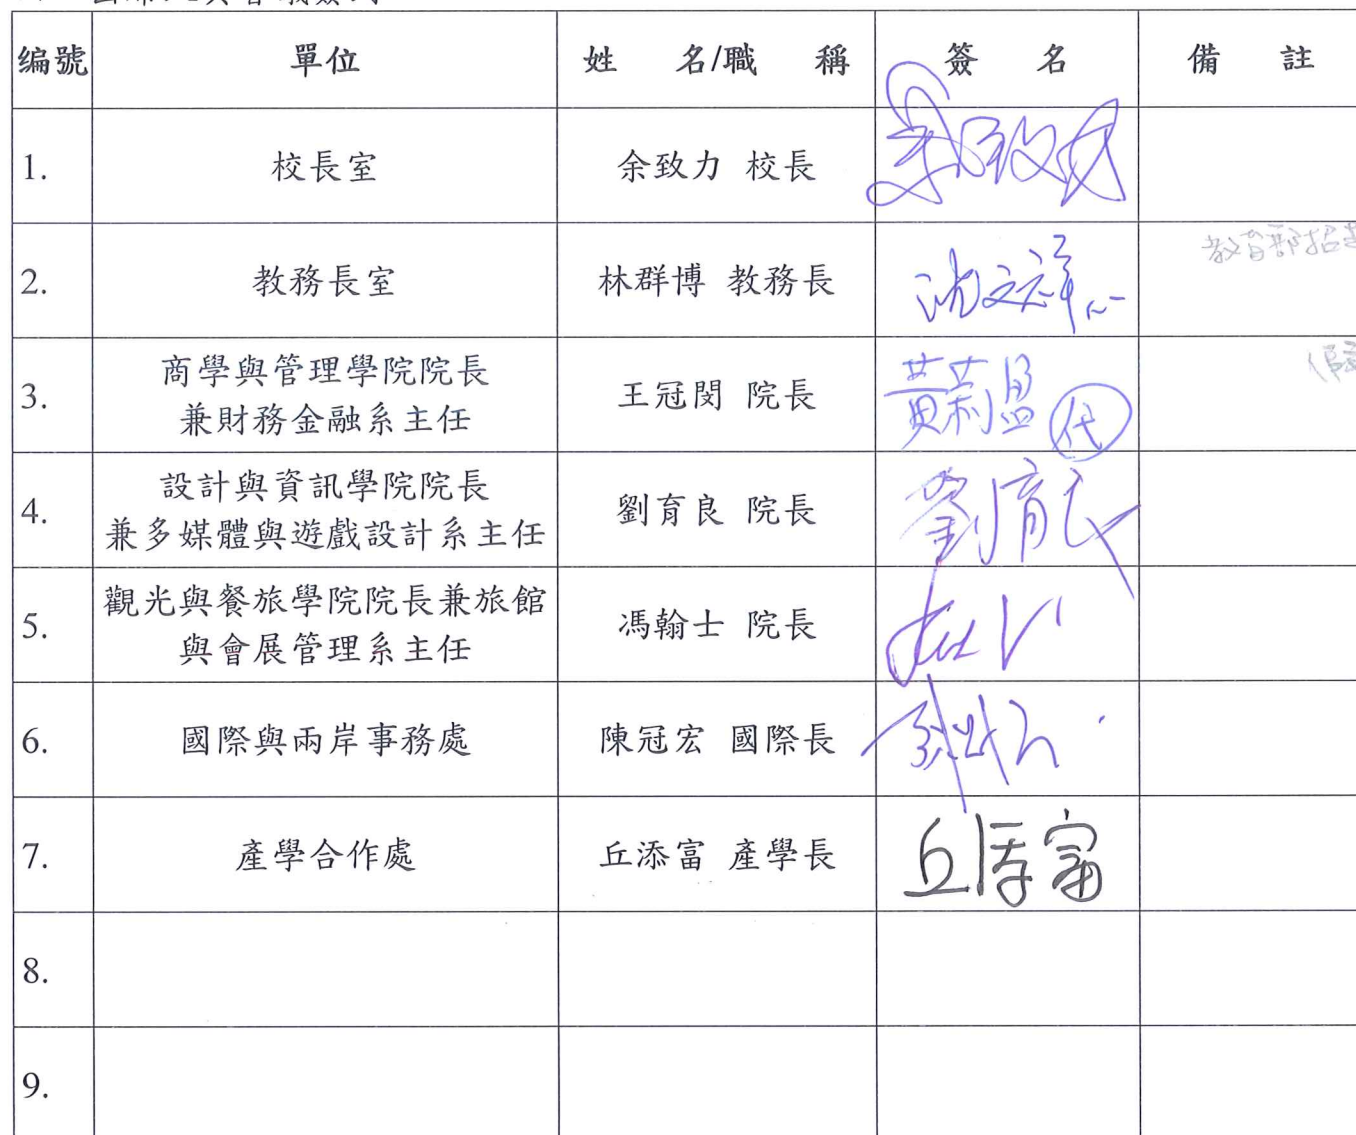 编號 單位 姓 名/職 稱 簽 名 備 註
1. 校長室 余致力 校長
2. 教務長室 林群博 教務長 沈文祥 教育部招
3. 商學與管理學院院長
兼財務金融系主任 王冠閔 院長 黃莉 代
4. 設計與資訊學院院長
兼多媒體與遊戲設計系主任 劉育良 院長 劉育良
5. 觀光與餐旅學院院長兼旅館
與會展管理系主任 馮翰士 院長
6. 國際與兩岸事務處 陳冠宏 國際長
7. 產學合作處 丘添富 產學長 丘添富
8.
9.